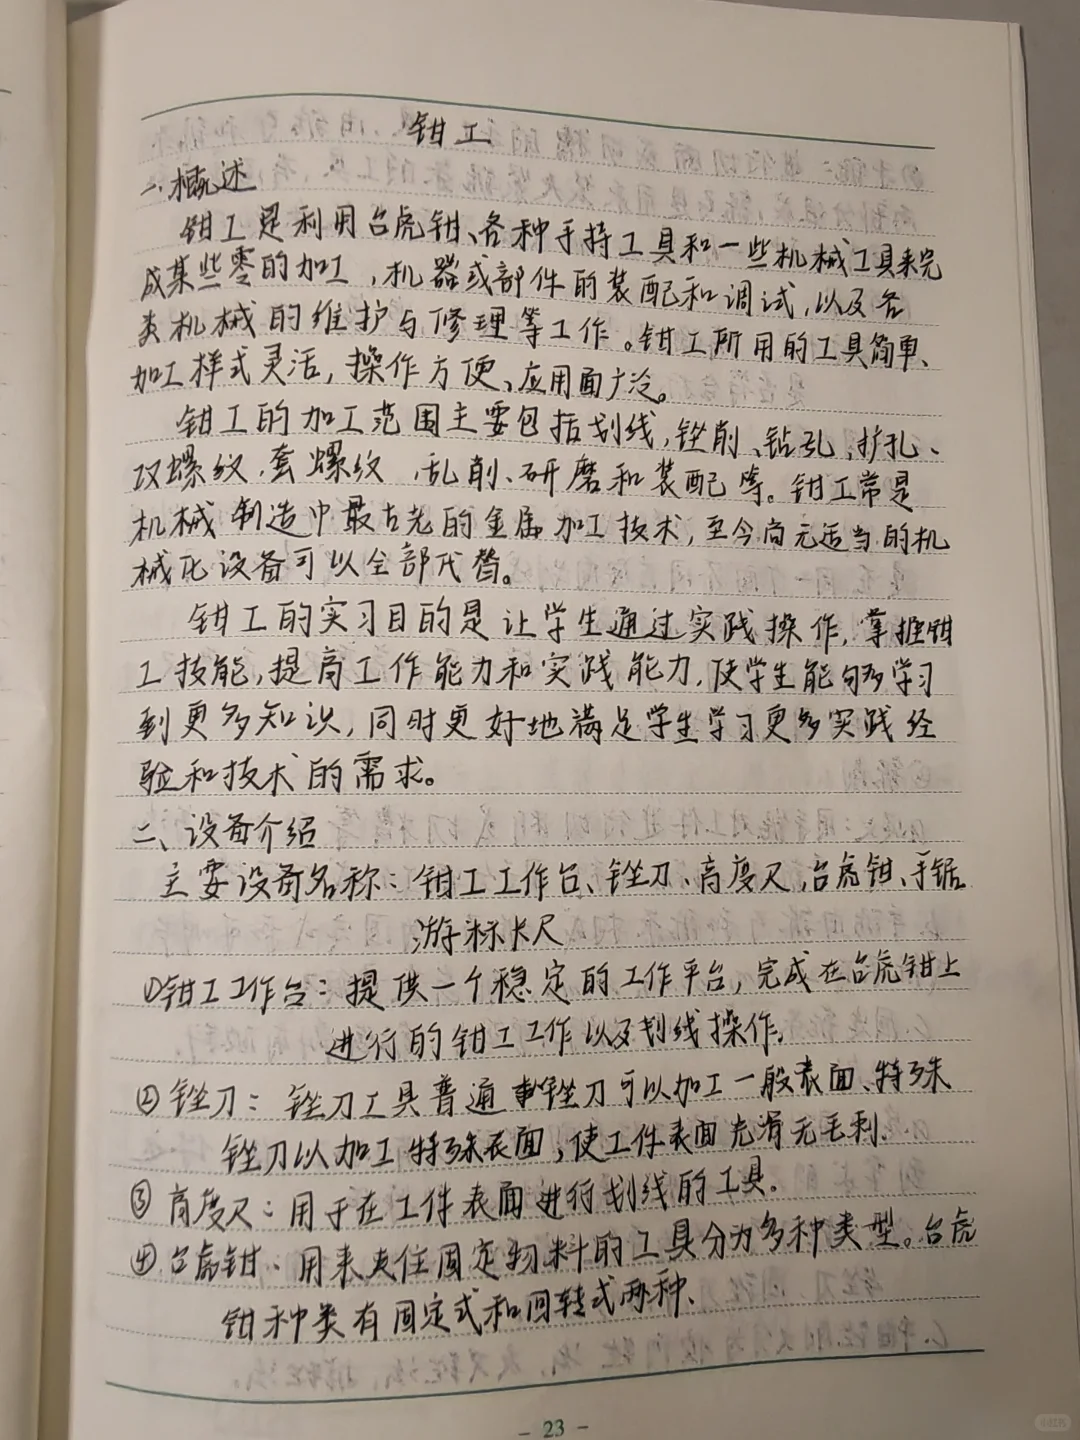 钳工
一、概述
钳工是利用台虎钳、各种手持工具和一些机械工具来完
成某些零的加工,机器或部件的装配和调试,以及各
类机械的维护与修理等工作。钳工所用的工具简单、
加工样式灵活,操作方便、应用面广泛。
钳工的加工范围主要包括划线,锉削、钻孔、扩孔、
攻螺纹、套螺纹,刮削、研磨和装配等。钳工常是
机械制造中最古老的金属加工技术,至今尚无适当的机
械化设备可以全部代替。
钳工的实习目的是让学生通过实践操作,掌握钳
工技能,提高工作能力和实践能力,使学生能够多学习
到更多知识,同时更好地满足学生学习更多实践经
验和技术的需求。
二、设备介绍
主要设备名称:钳工工作台、锉刀、高度尺,台虎钳、手锯、
游标卡尺
①钳工工作台:提供一个稳定的工作平台,完成在台虎钳上
进行的钳工工作以及划线操作.
②锉刀:锉刀工具普通锉刀可以加工一般表面、特殊
锉刀以加工特殊表面,使工件表面光滑无毛刺.
③高度尺:用于在工件表面进行划线的工具.
④台虎钳:用来夹住固定物料的工具分为多种类型。台虎
钳种类有固定式和回转式两种.
- 23 -